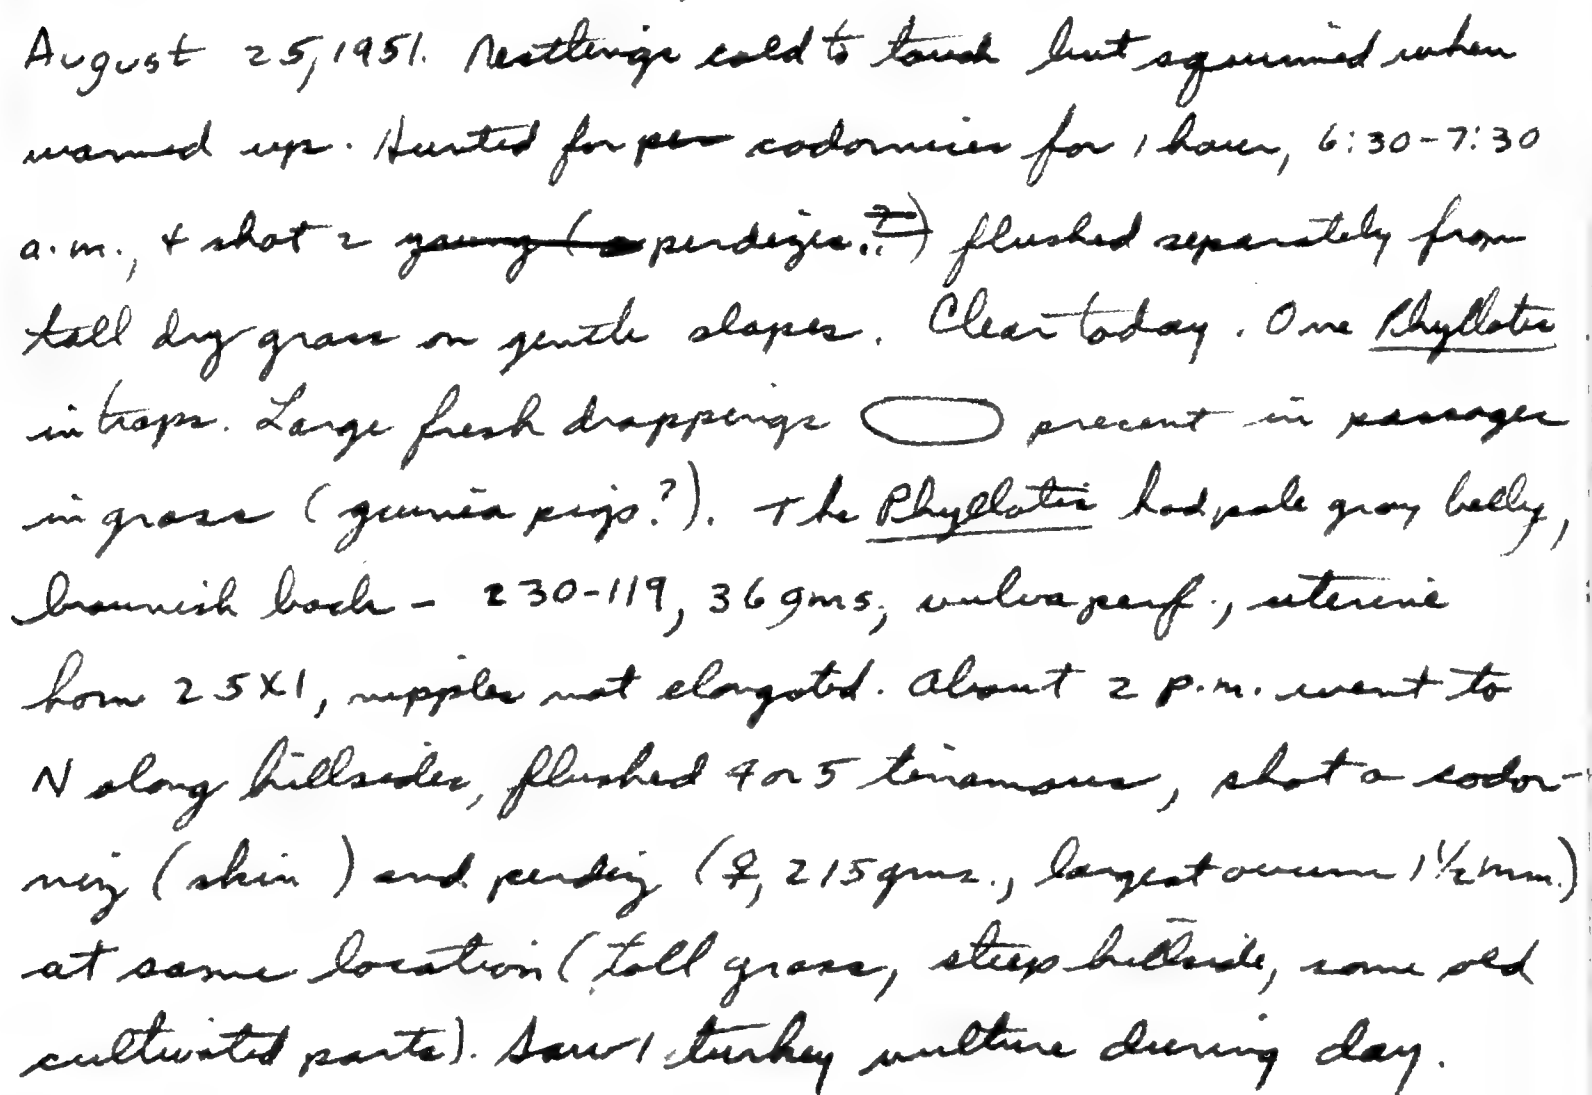 August 25, 1951. Nestlings cold to touch but squirmed when
warmed up. Hunted for codornices for 1 hour, 6:30-7:30
a.m., & shot 2 young ( perdizes..?) flushed separately from
tall dry grass on gentle slopes. Clear today. One Phyllotis
in traps. Large fresh droppings present in passages
in grass (guinea pigs?). The Phyllotis had pale gray belly,
brownish back - 230-119, 36 gms, vulva perf., uterine
horn 25X1, nipples not elongated. About 2 p.m. went to
N along hillsides, flushed 4 or 5 tinamous, shot a codor-
niz (skin ) and perdiz (♀, 215 gms., largest ovum 1½ mm.)
at same location (tall grass, steep hillside, some old
cultivated parts). Saw 1 turkey vulture during day.